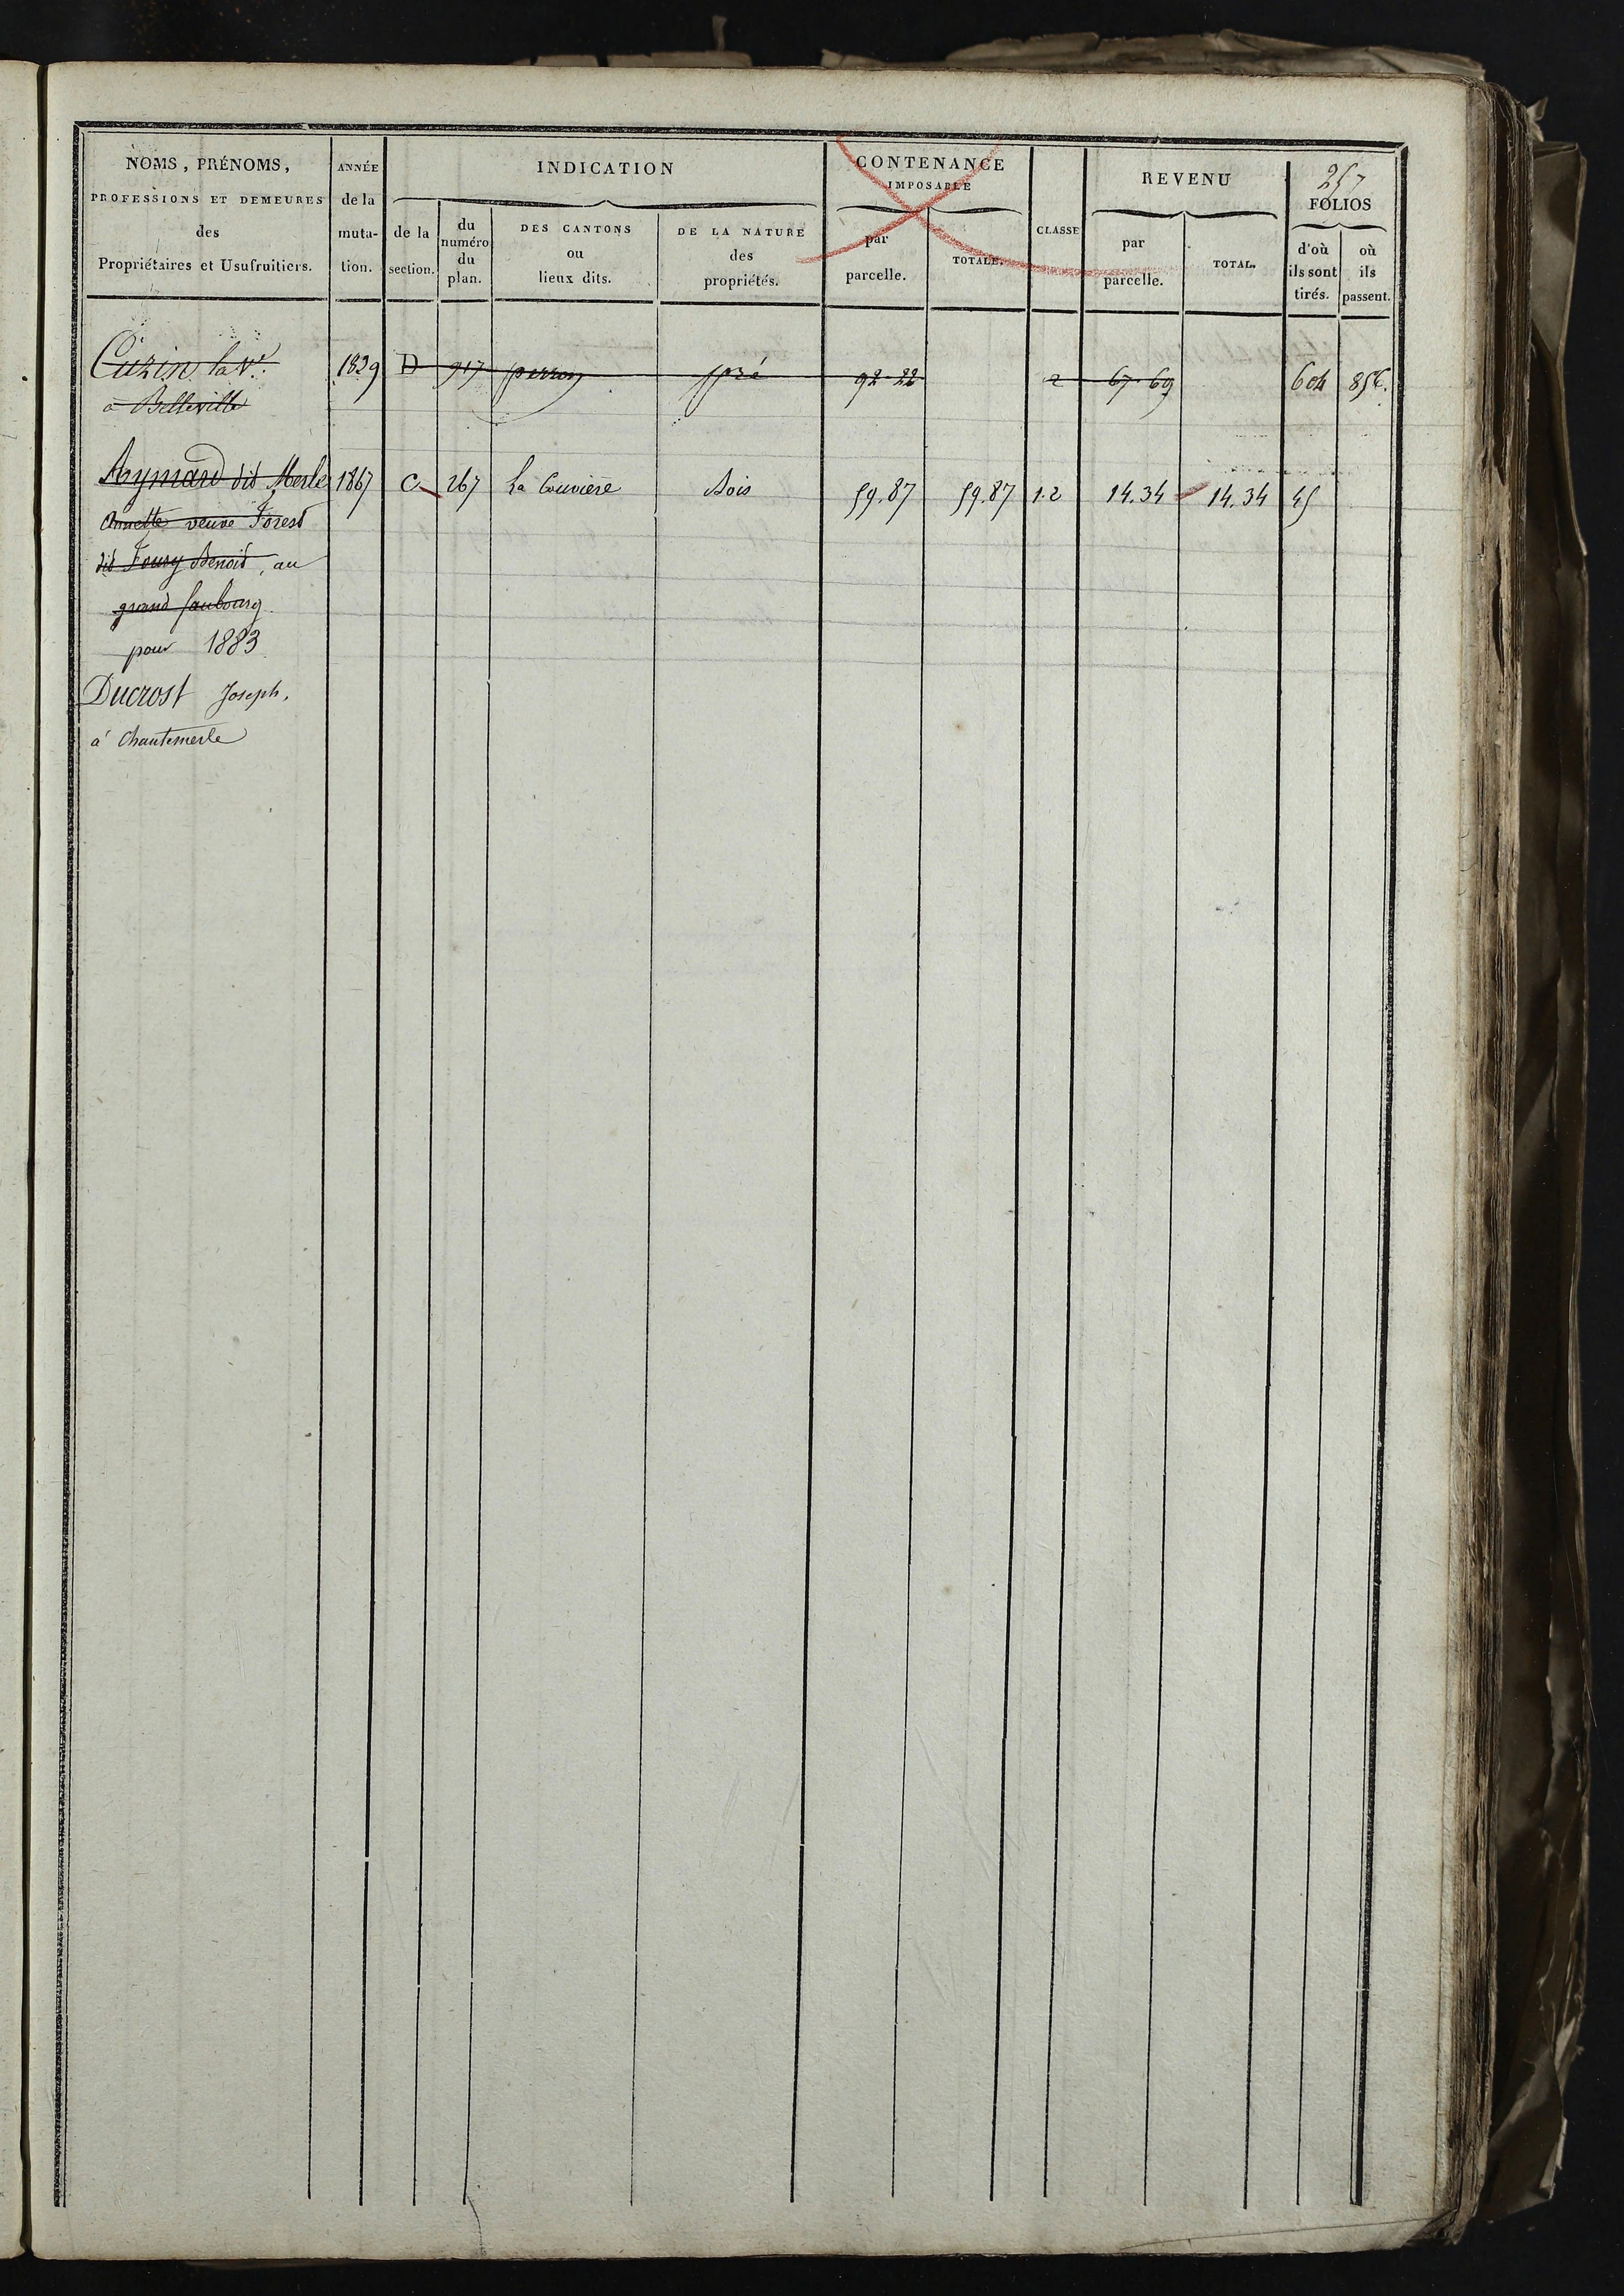 257
NOMS, PRÉNOMS,
PROFESSIONS ET DEMEURES
des
Propriétaires et Usufruitiers.
ANNÉE
de la
muta-
tion.
INDICATION
de la
section.
du
numéro
du
plan.
DES CANTONS
ou
lieux dits.
DE LA NATURE
des
propriétés.
CONTENANCE
IMPOSABLE
par
parcelle.
TOTALE.
CLASSE
REVENU
par
parcelle.
TOTAL.
FOLIOS
d'où
ils sont
tirés.
où
ils
passent.
Cuzin la Ve. 1829 D 917 perron pré 92-22 2 67-69 604 856.
à Belleville
Aymard dit Merle 1867 C 267 La Couvière Bois 59.87 59.87 1.2 14.34 14.34 45
Annette veuve Forest
dit Foury Benoit, au
grand faubourg
pour 1883
Ducrost Joseph,
à Chantemerle